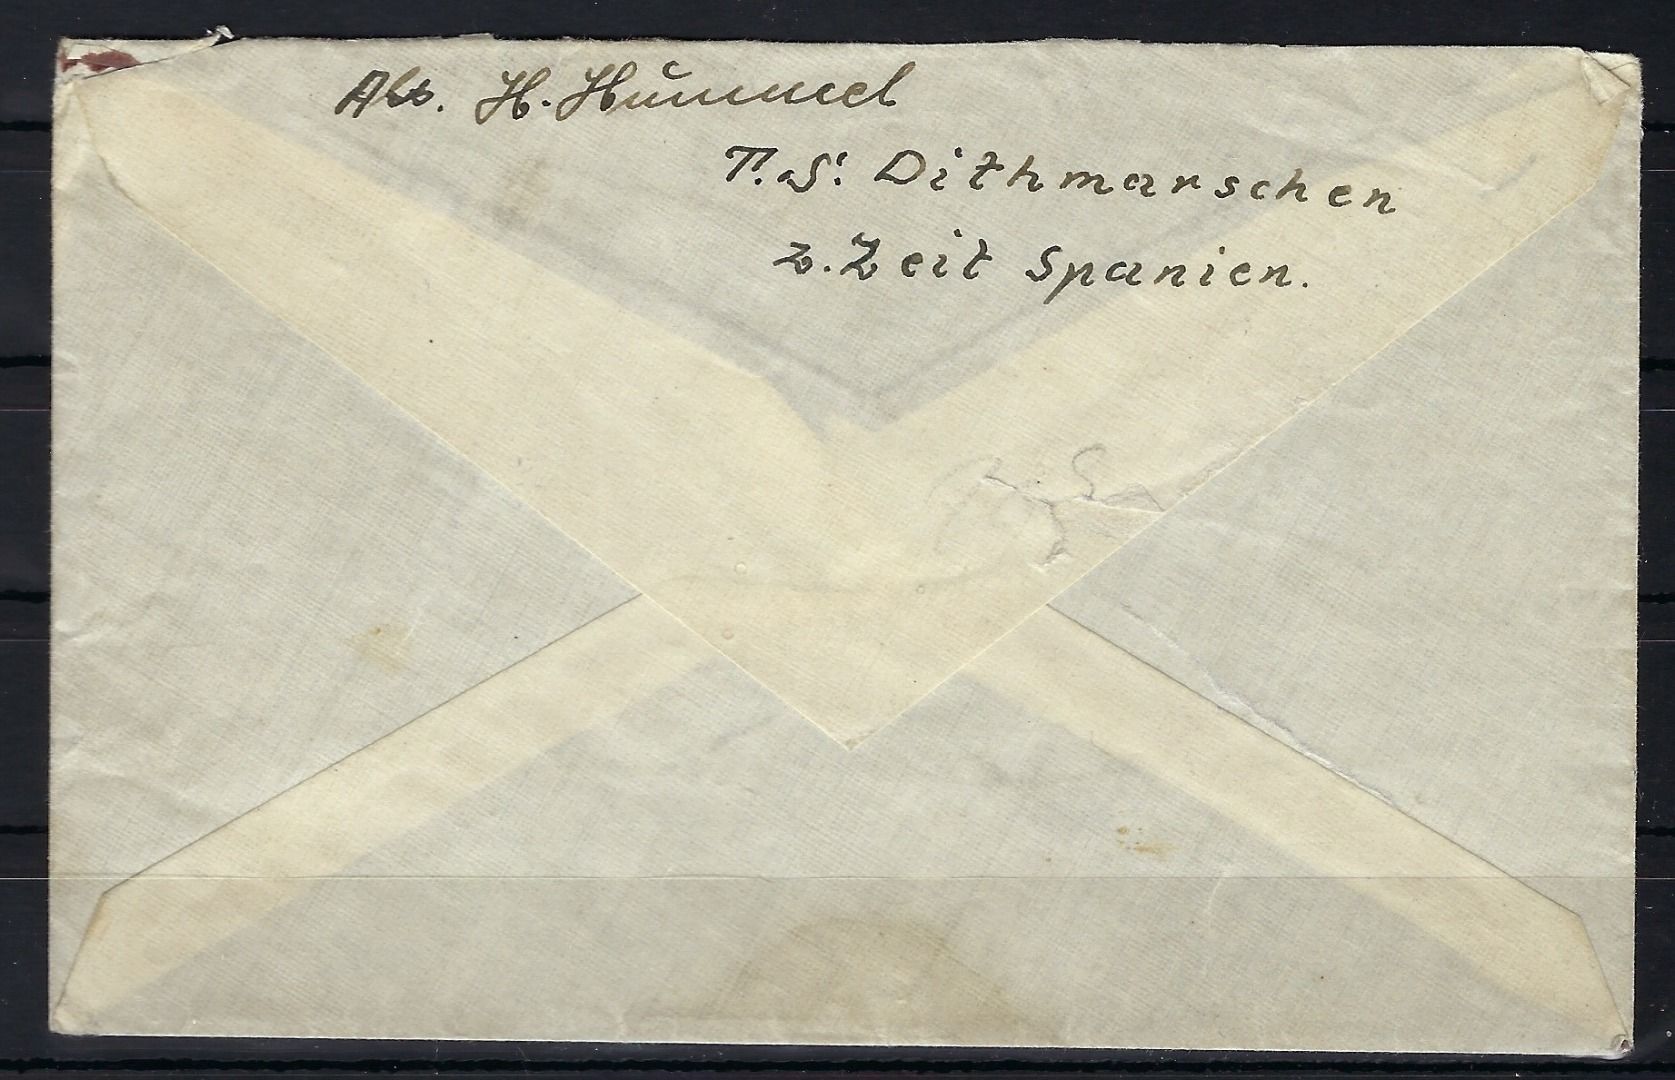 Abs. H. Hummel
T.S. Dithmarschen
z. Zeit Spanien.